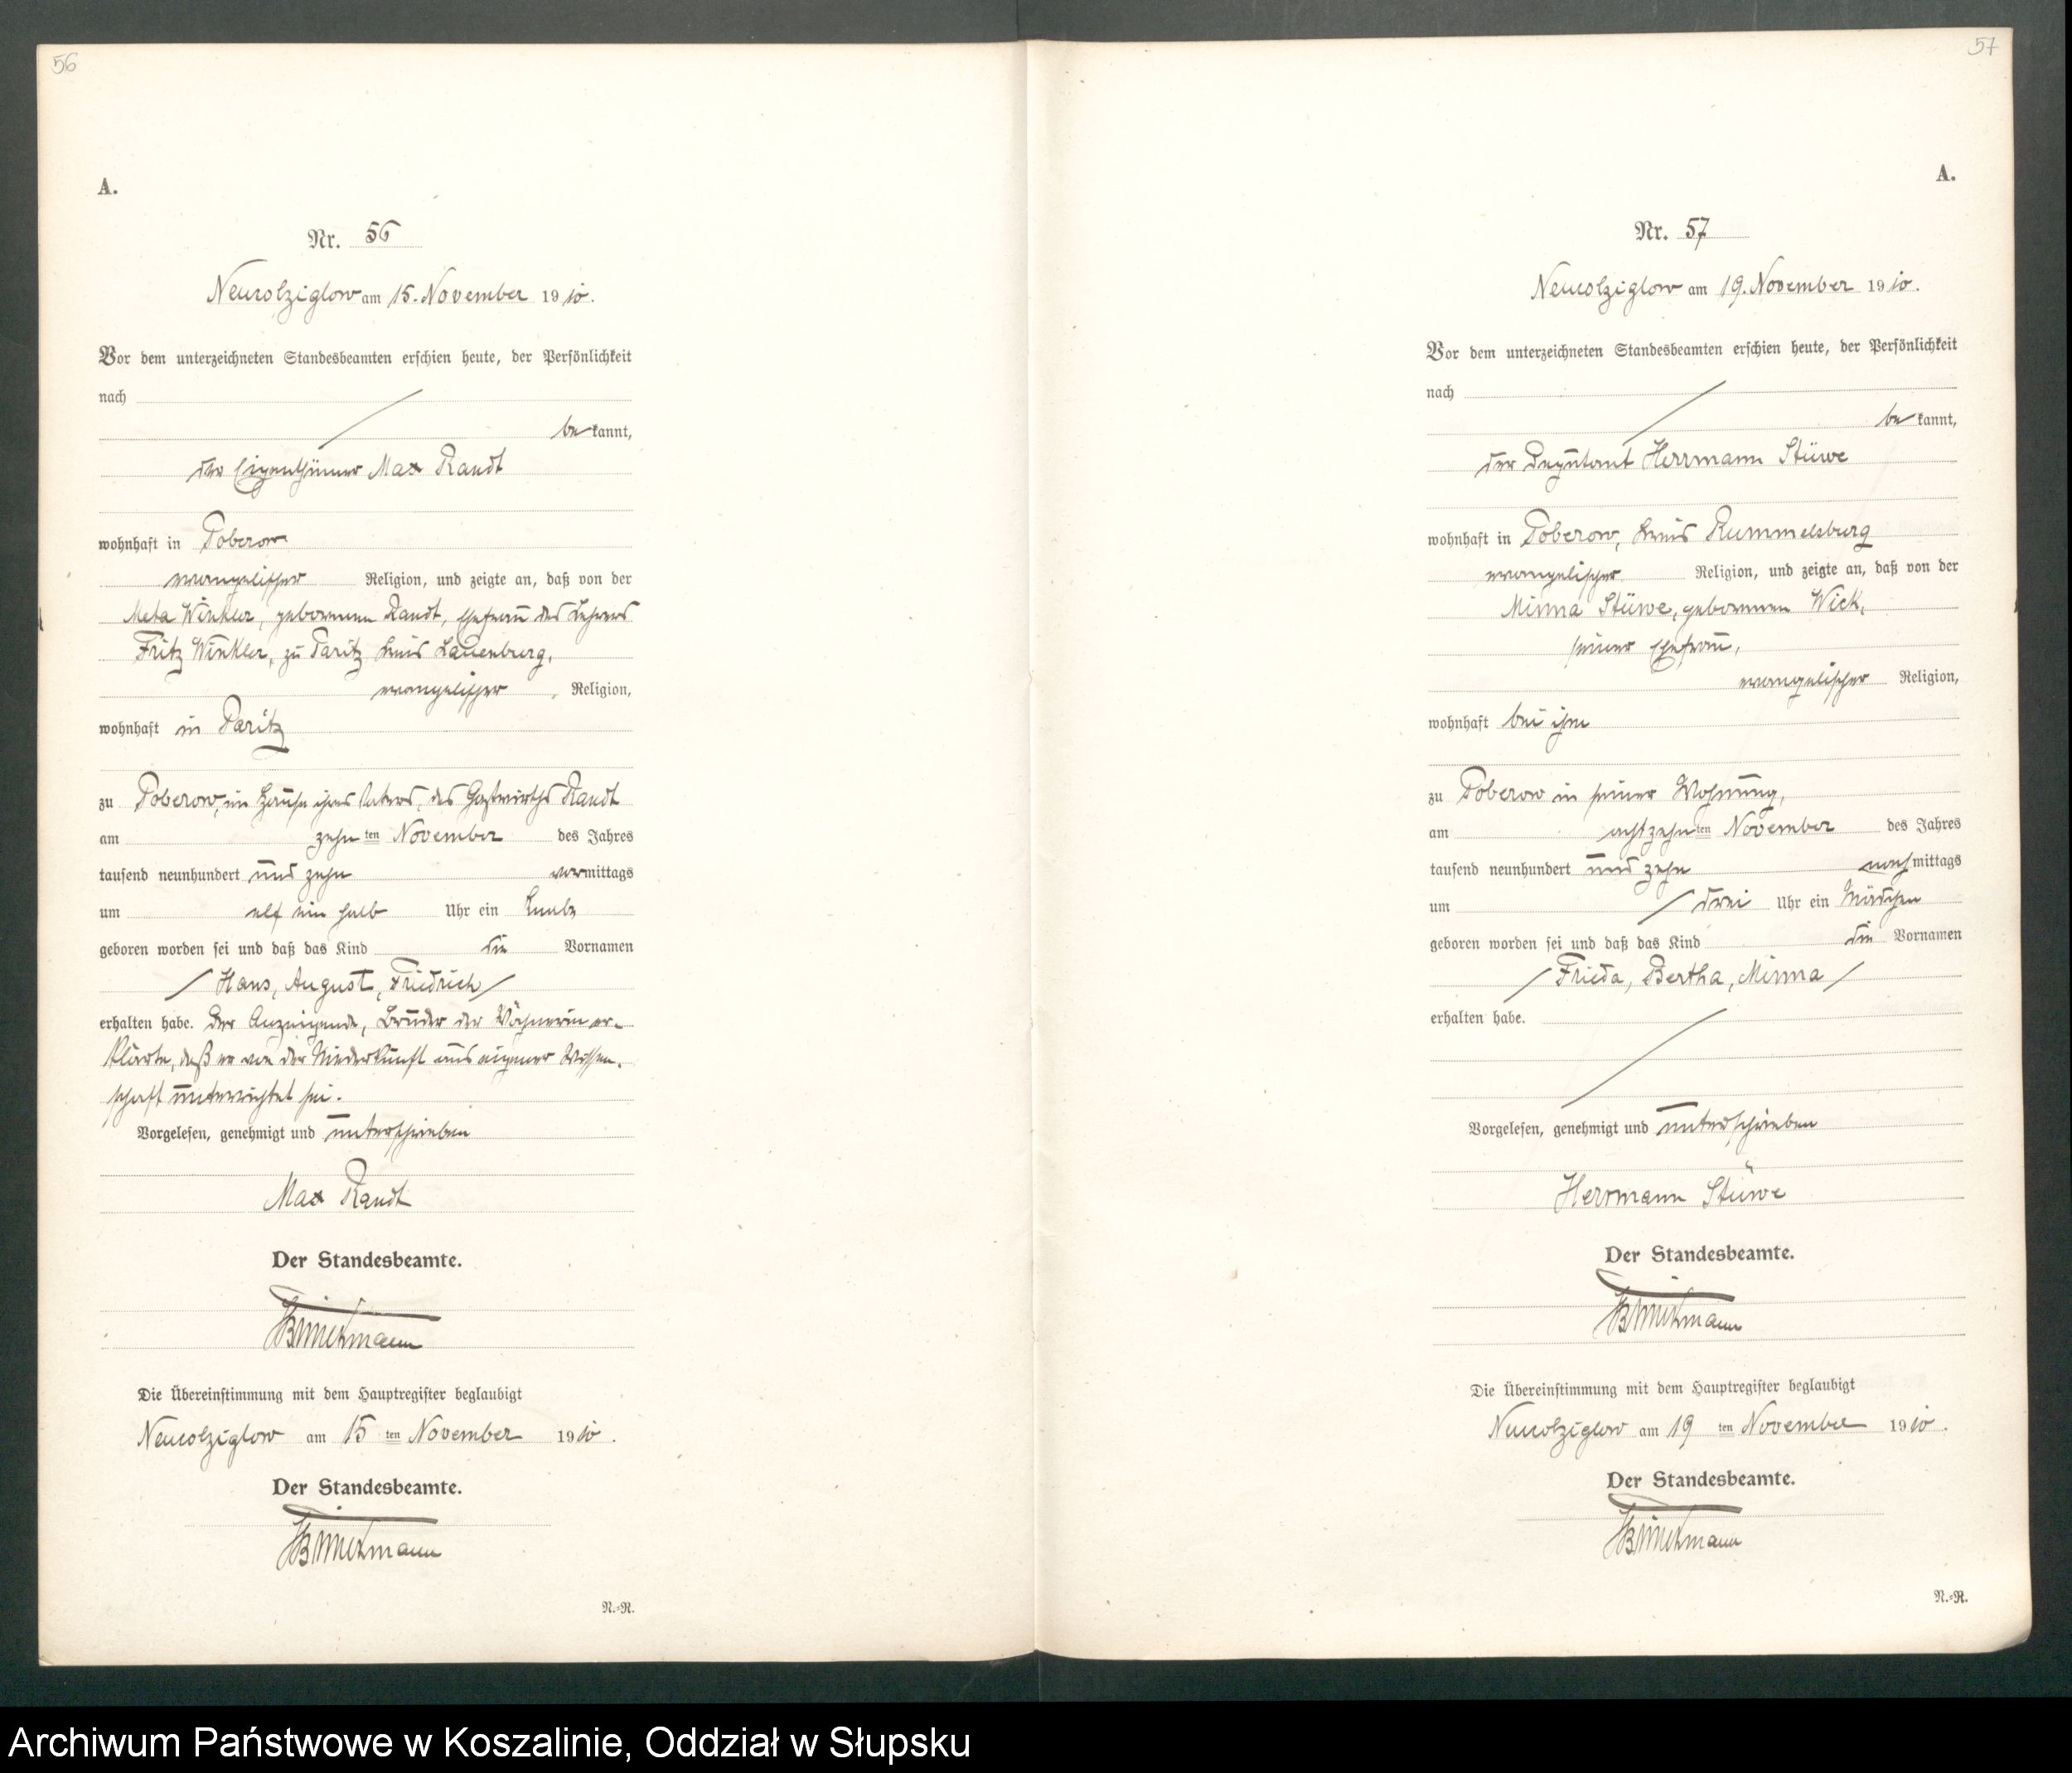 56
A.
Nr. 56
Neukolziglow am 15. November 1910.
Vor dem unterzeichneten Standesbeamten erschien heute, der Persönlichkeit
nach
bekannt,
der Eigenthümer Max Raudt
wohnhaft in Poberow
evangelischer Religion, und zeigte an, daß von der
Meta Winkler, geborenen Raudt, Ehefrau des Lehrers
Fritz Winkler, zu Paritz Kreis Lauenburg,
evangelischer Religion,
wohnhaft in Paritz
zu Poberow, im Hause ihres Vaters, des Gastwirths Raudt
am zehnten November des Jahres
tausend neunhundert und zehn vormittags
um elf ein halb Uhr ein Knabe
geboren worden sei und daß das Kind die Vornamen
Hans, August, Friedrich
erhalten habe. Der Anzeigende, Bruder der Wöchnerin er-
klärte, daß er von der Niederkunft aus eigener Wissen-
schaft unterrichtet sei.
Vorgelesen, genehmigt und unterschrieben
Max Raudt
Der Standesbeamte.
Die Übereinstimmung mit dem Hauptregister beglaubigt
Neukolziglow am 15ten November 1910.
Der Standesbeamte.
N.-R.
57
A.
Nr. 57
Neukolziglow am 19. November 1910.
Vor dem unterzeichneten Standesbeamten erschien heute, der Persönlichkeit
nach
bekannt,
der Deputant Herrmann Stüwe
wohnhaft in Poberow, Kreis Rummelsburg
evangelischer Religion, und zeigte an, daß von der
Minna Stüwe, geborenen Wick,
seiner Ehefrau,
evangelischer Religion,
wohnhaft bei ihm
zu Poberow in seiner Wohnung,
am achtzehnten November des Jahres
tausend neunhundert und zehn nachmittags
um drei Uhr ein Mädchen
geboren worden sei und daß das Kind die Vornamen
Frieda, Bertha, Minna
erhalten habe.
Vorgelesen, genehmigt und unterschrieben
Herrmann Stüwe
Der Standesbeamte.
Die Übereinstimmung mit dem Hauptregister beglaubigt
Neukolziglow am 19ten November 1910.
Der Standesbeamte.
N.-R.
Archiwum Państwowe w Koszalinie, Oddział w Słupsku